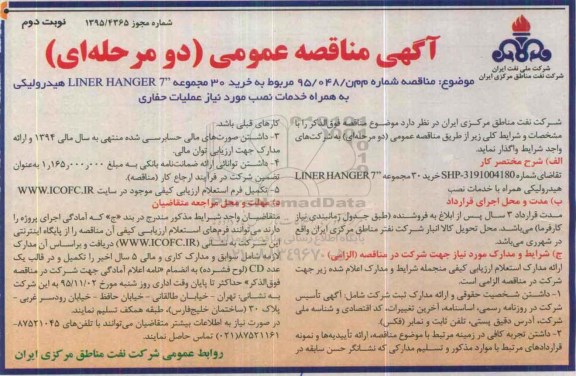 شماره مجوز ۱۳۹۵/۴۳۶۵
نوبت دوم
شرکت ملی نفت ایران
شرکت نفت مناطق مرکزی ایران
آگهی مناقصه عمومی (دو مرحله‌ای)
موضوع: مناقصه شماره م‌م‌ن/۹۵/۰۴۸ مربوط به خرید ۳۰ مجموعه LINER HANGER 7” هیدرولیکی
به همراه خدمات نصب مورد نیاز عملیات حفاری
شرکت نفت مناطق مرکزی ایران در نظر دارد موضوع مناقصه فوق‌الذکر را با
مشخصات و شرایط کلی زیر از طریق مناقصه عمومی (دو مرحله‌ای) به شرکت‌های
واجد شرایط واگذار نماید.
الف) شرح مختصر کار
تقاضای شماره SHP-3191004180 خرید ۳۰ مجموعه LINER HANGER 7”
هیدرولیکی همراه با خدمات نصب
ب) مدت و محل اجرای قرارداد
مدت قرارداد ۳ سال پس از ابلاغ به فروشنده (طبق جدول زمانبندی نیاز
کارفرما) می‌باشد. محل تحویل کالا انبار شرکت نفتر مناطق مرکزی واقع
در شهرری می‌باشد.
ج) شرایط و مدارک مورد نیاز جهت شرکت در مناقصه (الزامی)
ارائه مدارک استعلام ارزیابی کیفی منجمله شرایط و مدارک اعلام شده زیر جهت
شرکت در مناقصه الزامی است.
۱- داشتن شخصیت حقوقی و ارائه مدارک ثبت شرکت شامل: آگهی تأسیس
شرکت در روزنامه رسمی، اساسنامه، آخرین تغییرات، کد اقتصادی و شناسه ملی
شرکت، آدرس دقیق پستی، تلفن ثابت و نمابر (فکس).
۲- داشتن تجربه کافی در زمینه مرتبط با موضوع مناقصه، ارائه تأییدیه‌ها و نمونه
قراردادهای مرتبط با موارد مذکور و تسلیم مدارکی که نشانگر حسن سابقه در
کارهای قبلی باشد.
۳- داشتن صورت‌های مالی حسابرسی شده منتهی به سال مالی ۱۳۹۴ و ارائه
مدارک جهت ارزیابی توان مالی.
۴- داشتن توانائی ارائه ضمانت‌نامه بانکی به مبلغ ۱٫۱۶۵٫۰۰۰٫۰۰۰ ریال به‌عنوان
تضمین شرکت در فرآیند ارجاع کار (مناقصه).
۵- تکمیل فرم استعلام ارزیابی کیفی موجود در سایت WWW.ICOFC.IR
د) مهلت و محل مراجعه متقاضیان
متقاضیان واجد شرایط مذکور مندرج در بند «ج» که آمادگی اجرای پروژه را
دارند می‌توانند فرم‌های استعلام ارزیابی کیفی آن مناقصه را از پایگاه اینترنتی
این شرکت به نشانی (WWW.ICOFC.IR) دریافت و براساس آن مدارک
لازمه شامل سوابق و مدارک کاری و مالی ۵ سال اخیر را تکمیل و در قالب یک
عدد CD (لوح فشرده) به انضمام «نامه اعلام آمادگی جهت شرکت در مناقصه
فوق‌الذکر» حداکثر تا پایان وقت اداری روز شنبه مورخ ۹۵/۱۱/۰۲ به این شرکت
به نشانی: تهران - خیابان طالقانی - خیابان حافظ - خیابان رودسر غربی -
پلاک ۳۰ (ساختمان خلیج‌فارس)، طبقه همکف تسلیم نمایند.
در صورت نیاز به اطلاعات بیشتر متقاضیان می‌توانند با تلفن‌های ۸۷۵۲۱۰۴۵-
۸۷۵۲۱۱۶۱(۰۲۱) تماس حاصل نمایند.
روابط عمومی شرکت نفت مناطق مرکزی ایران